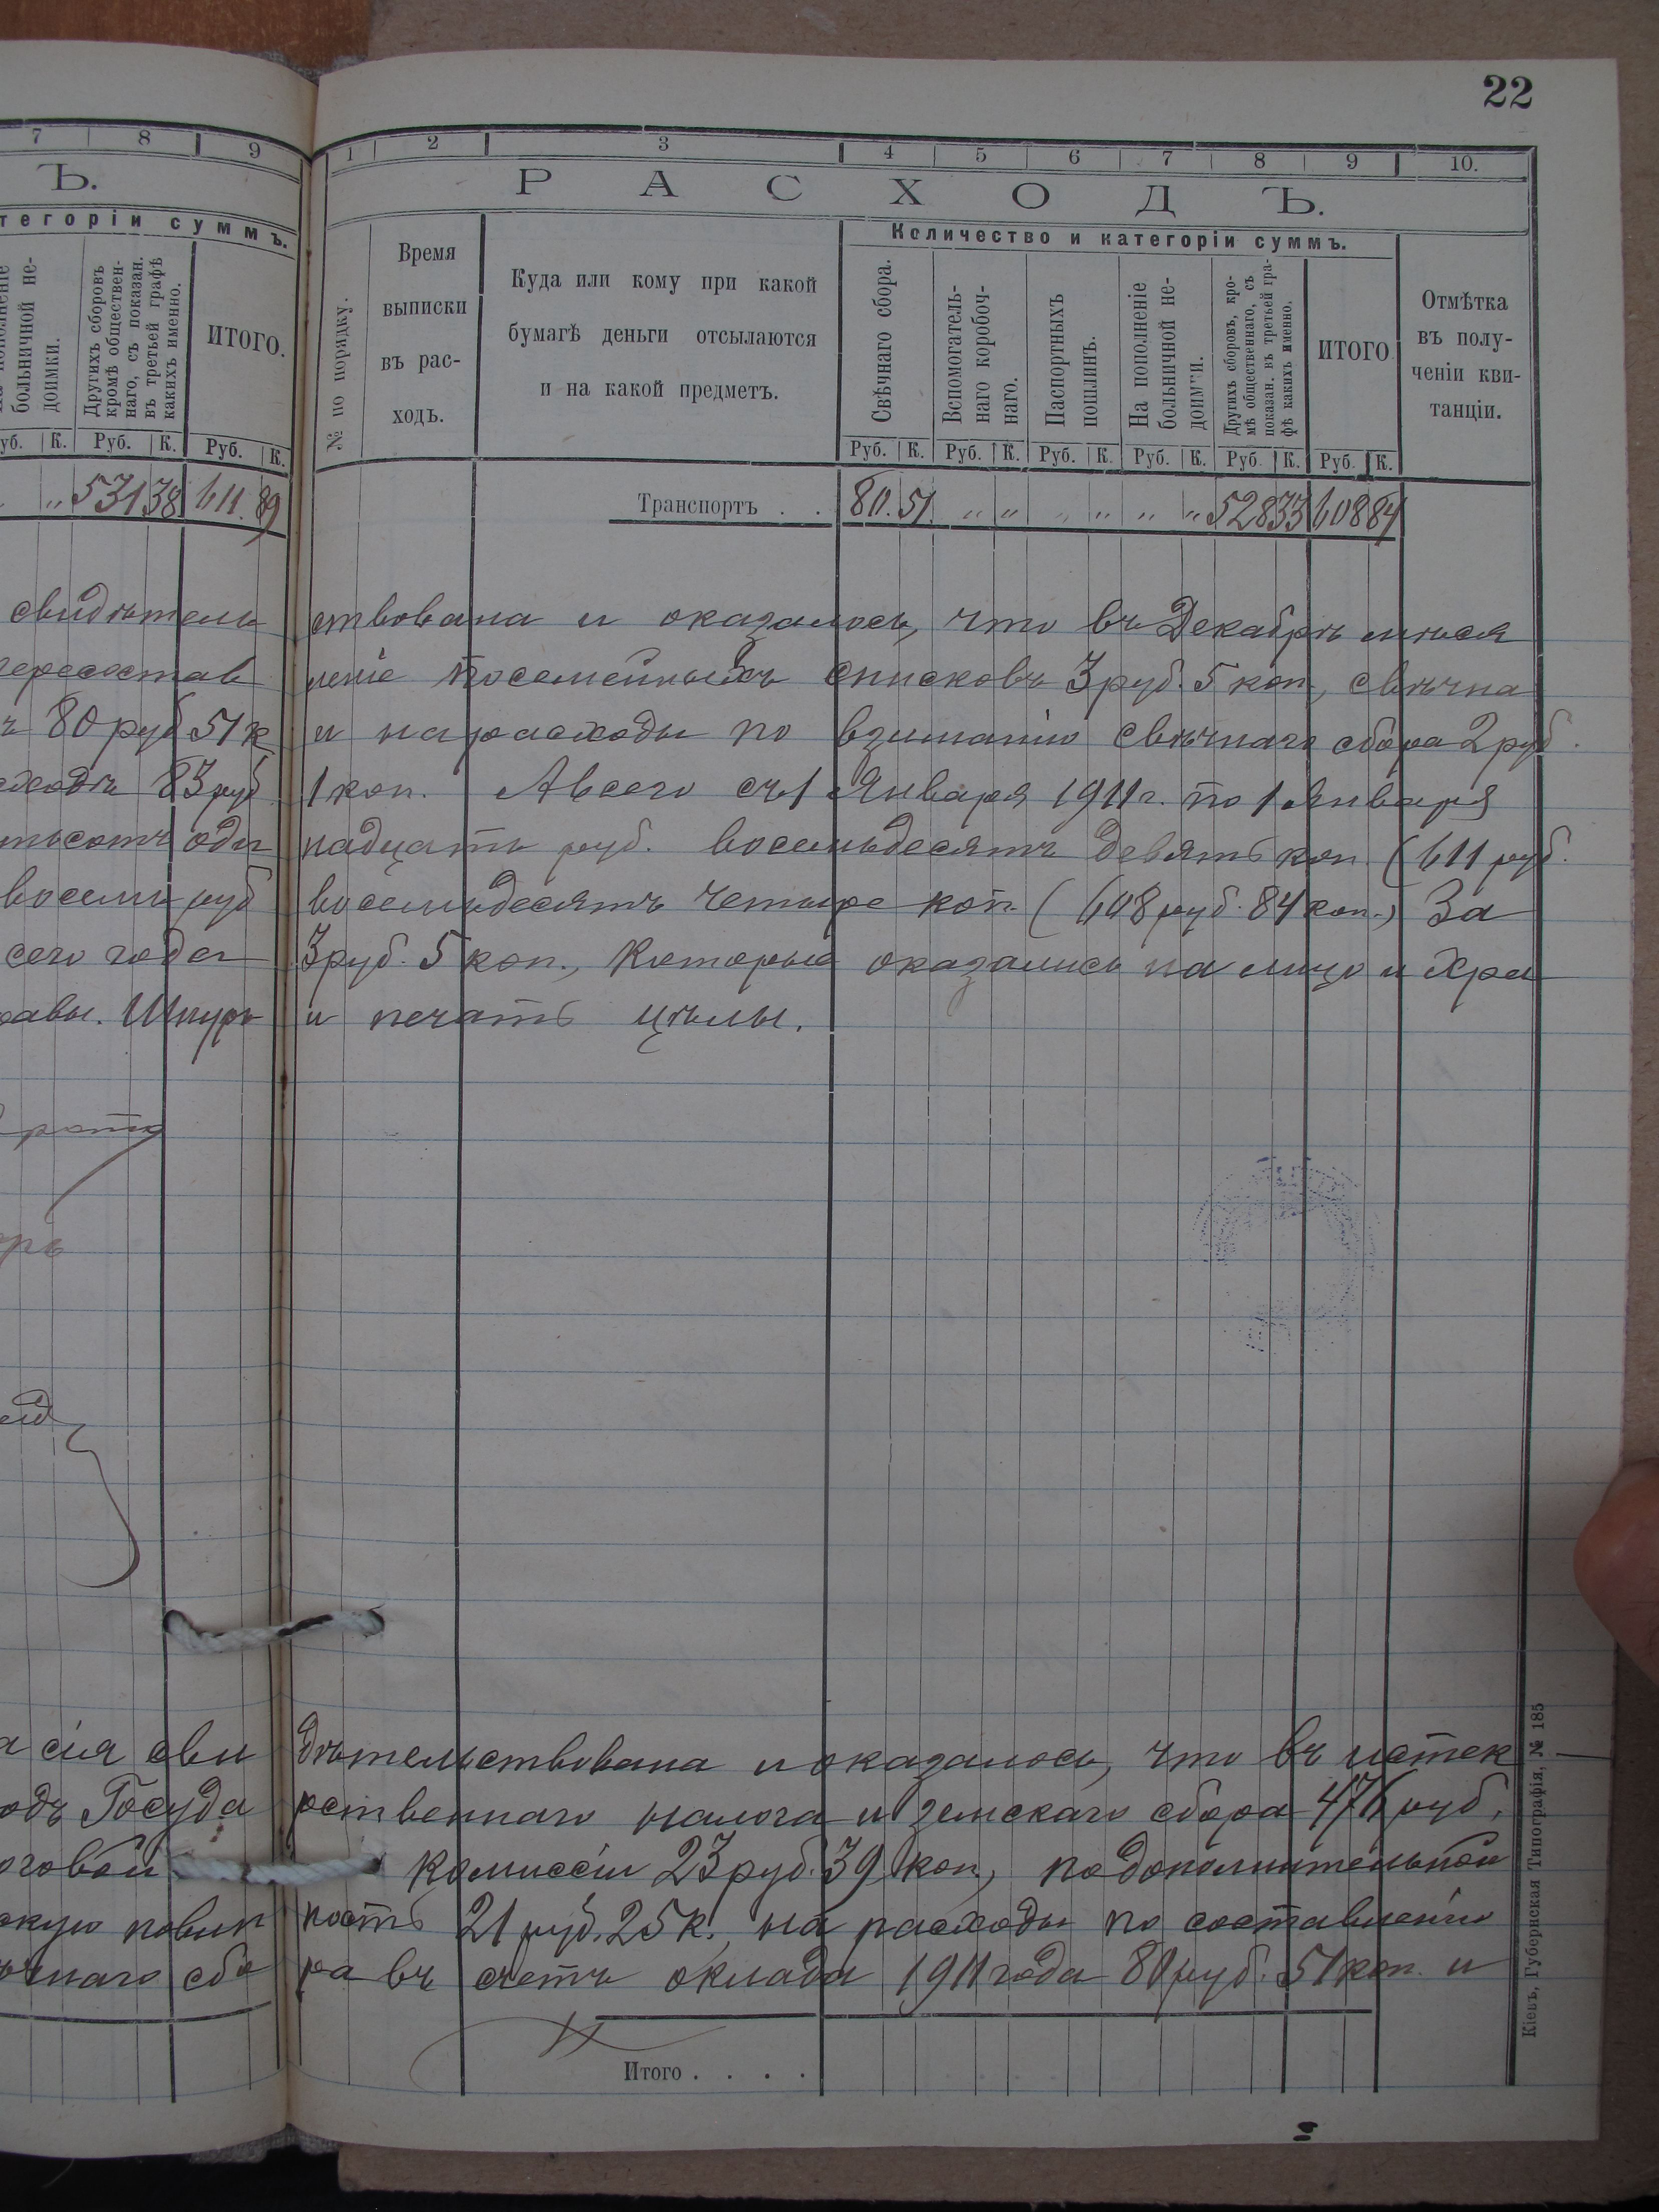 22
7 8 9
Ъ.
тегоріи суммъ.
больничной не-
доимки.
Другихъ сборовъ
кромѣ обществен-
наго, съ показан.
въ третьей графѣ
какихъ именно.
ИТОГО.
уб. К. Руб. К. Руб. К.
„ 531 38 611. 89
1 2 3 4 5 6 7 8 9 10.
РАСХОДЪ.
№ по порядку.
Время
выписки
въ рас-
ходъ.
Куда или кому при какой
бумагѣ деньги отсылаются
и на какой предметъ.
Количество и категоріи суммъ.
Свѣчнаго сбора.
Вспомогатель-
наго коробоч-
наго.
Паспортныхъ
пошлинъ.
На пополненіе
больничной не-
доимки.
Другихъ сборовъ, кро-
мѣ общественнаго, съ
показан. въ третьей гра-
фѣ какихъ именно.
ИТОГО
Отмѣтка
въ полу-
ченіи кви-
танціи.
Руб. К. Руб. К. Руб. К. Руб. К. Руб. К. Руб. К.
Транспортъ . . 80. 51. „ „ „ „ „ „ 528 33 608 84
свидѣтель ствована и оказалось, что въ Декабрѣ мѣся
пересостав леніе посемейныхъ списковъ 3 руб. 5 коп., свѣчна
80 руб 51 к и на расходы по взиманію свѣчнаго сбора 2 руб.
сходъ 83 руб 1 коп. А всего съ 1 Января 1911 г. по 1 Января
тьсотъ оди надцать руб. восемьдесятъ девять коп. (611 руб.
восемь руб восемьдесятъ четыре коп. (608 руб. 84 коп.) За
сего года 3 руб. 5 коп., которые оказались на лицо и хра
равы. Шнуръ и печать цѣлы.
а сія сви дѣтельствована и оказалось, что въ истек
одъ Госуда рственнаго налога и земскаго сбора 476 руб.
оговой комиссіи 23 руб. 39 коп., по дополнительной
скую повин ность 21 руб. 25 к., на расходы по составленію
чнаго сбо ра въ счетъ оклада 1911 года 80 руб. 51 коп. и
Итого . . . .
Кіевъ, Губернская Типографія, № 185